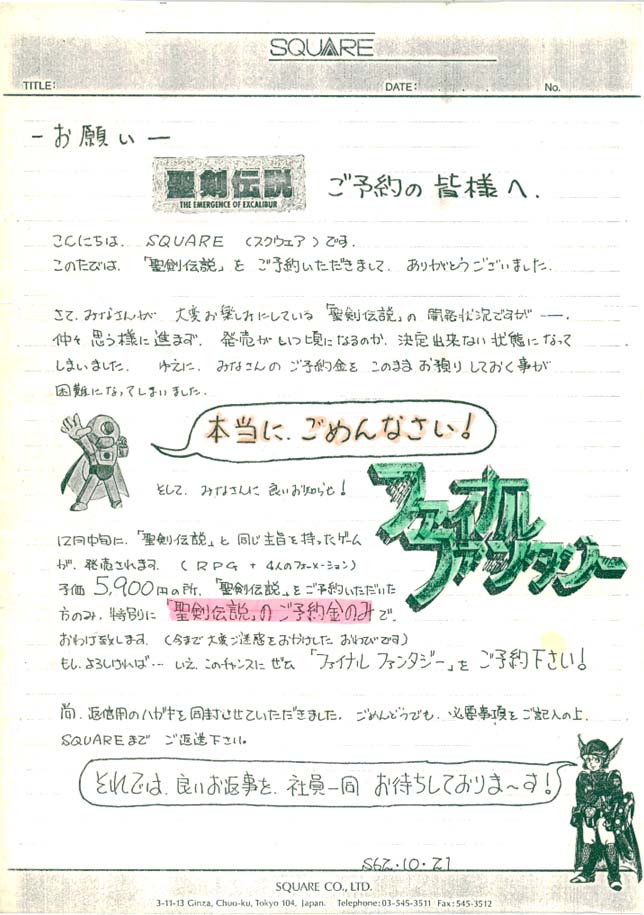 SQUARE
TITLE: DATE: . . . No.
ーお願いー
聖剣伝説
THE EMERGENCE OF EXCALIBUR
ご予約の皆様へ.
こんにちは. SQUARE (スクウェア)です.
このたびは.「聖剣伝説」を ご予約いただきまして. ありがとうございました.
さて、みなさんが 大変お楽しみにしている「聖剣伝説」の 開発状況ですが ー.
仲々 思う様に進まず. 発売がいつ頃になるのか. 決定出来ない状態になって
しまいました. ゆえに. みなさんの ご予約金を このままお預りしておく事が
困難になってしまいました.
本当に.ごめんなさい!
そして. みなさんに 良いお知らせ!
ファイナル
ファンタジー
12月中旬に.「聖剣伝説」と同じ主旨を持ったゲーム
が. 発売されます. (RPG + 4人のフォーメーション)
予価 5,900円の所.「聖剣伝説」をご予約いただいた
方のみ. 特別に「聖剣伝説」のご予約金のみで.
おわけ致します. (今まで大変ご迷惑をおかけした おわびです)
もし.よろしければ… いえ.このチャンスに ぜひ「ファイナル ファンタジー」を ご予約下さい!
尚. 返信用のハガキを同封させていただきました. ごめんどうでも. 必要事項をご記入の上.
SQUAREまで ご返送下さい。
それでは.良いお返事を. 社員一同 お待ちしておりま〜す!
S62.10.21
SQUARE CO., LTD.
3-11-13 Ginza, Chuo-ku, Tokyo 104, Japan. Telephone: 03-545-3511 Fax: 545-3512